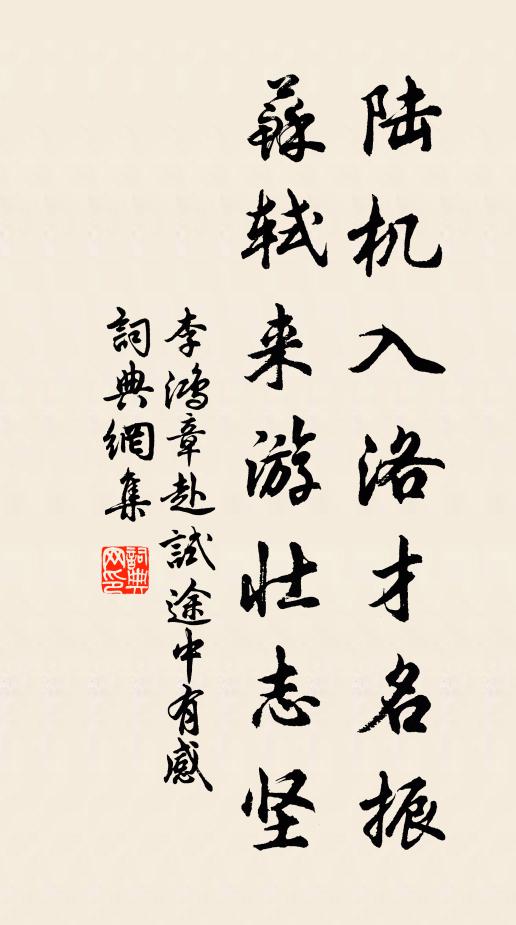 陆机入洛才名振
蘇轼来游壮志坚
李鸿章赴試途中有感
詞典網集
詞典网印